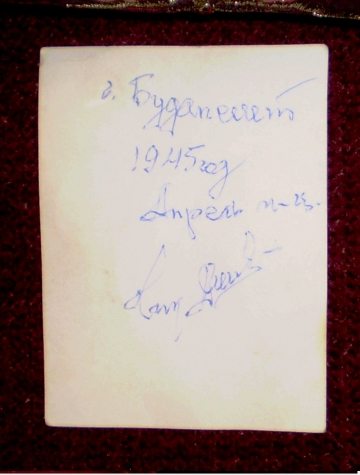 г. Будапешт
1945 год
Апрель м-ц.